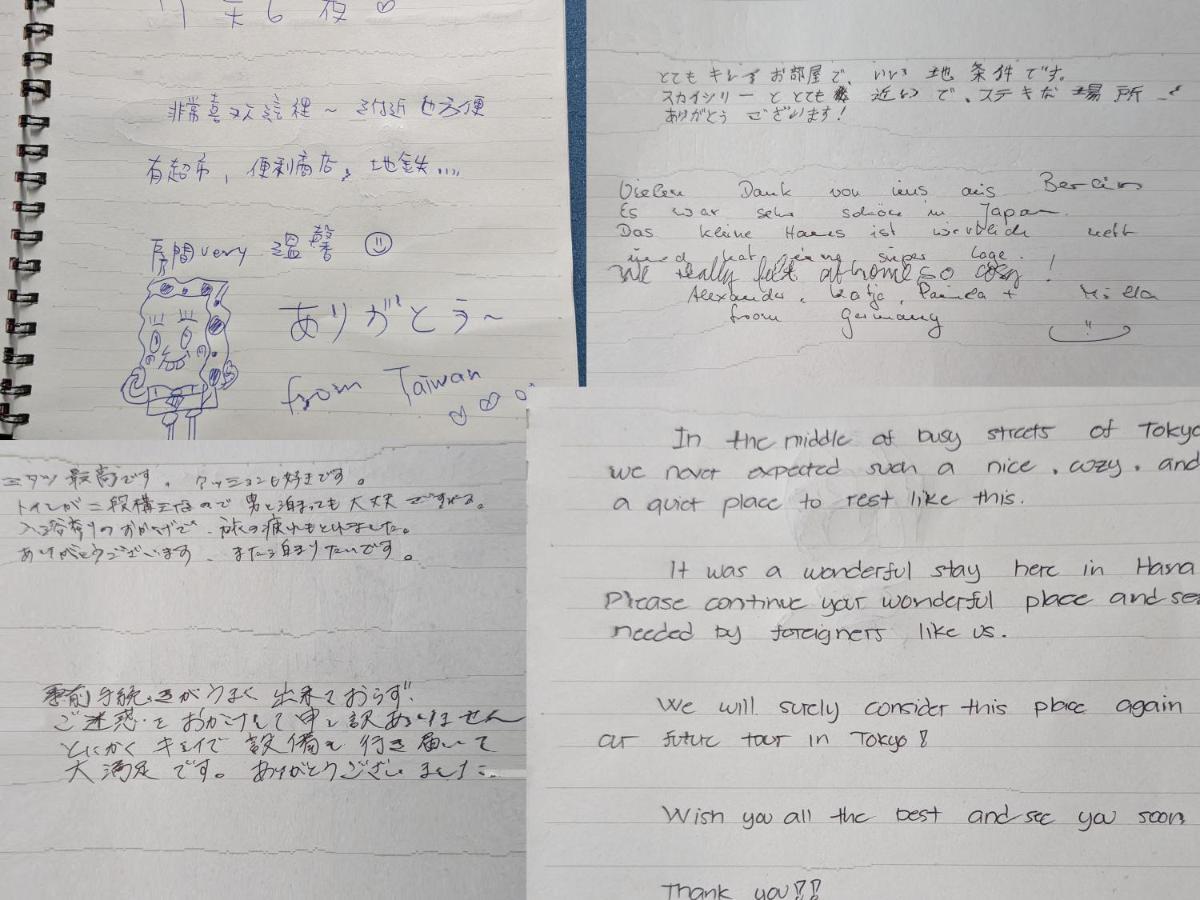 非常喜欢這裡~ 附近也方便
有超市, 便利商店, 地鉄....
房間very 温馨
ありがとう~
from Taiwan
とてもキレイ お部屋で、いい 地 条件です。
スカイシリーと とても 近いで、ステキだ 場所
ありがとう ございます!
Vielen Dank von uns aus Berlin
Es war sehr schön in Japan.
Das kleine Haus ist wirklich nett
und hat eine super Lage.
We really felt at home so cosy!
Alexander, Katja, Pamela + Milla
from Germany
最高です。クッションも好きです。
トイレが二段構えなので男と泊まっても大丈夫ですね。
のおかげで、旅の疲れもとれました。
ありがとうございます、また泊まりたいです。
事前手続きがうまく出来ておらず、
ご迷惑をおかけして申し訳ありません
とにかくキレイで設備も行き届いて
大満足です。ありがとうございました
In the middle of busy streets of Tokyo
we never expected such a nice, cozy, and
a quiet place to rest like this.
It was a wonderful stay here in Hana
Please continue your wonderful place and
needed by foreigners like us.
We will surely consider this place again
our future tour in Tokyo!
Wish you all the best and see you soon
Thank you!!